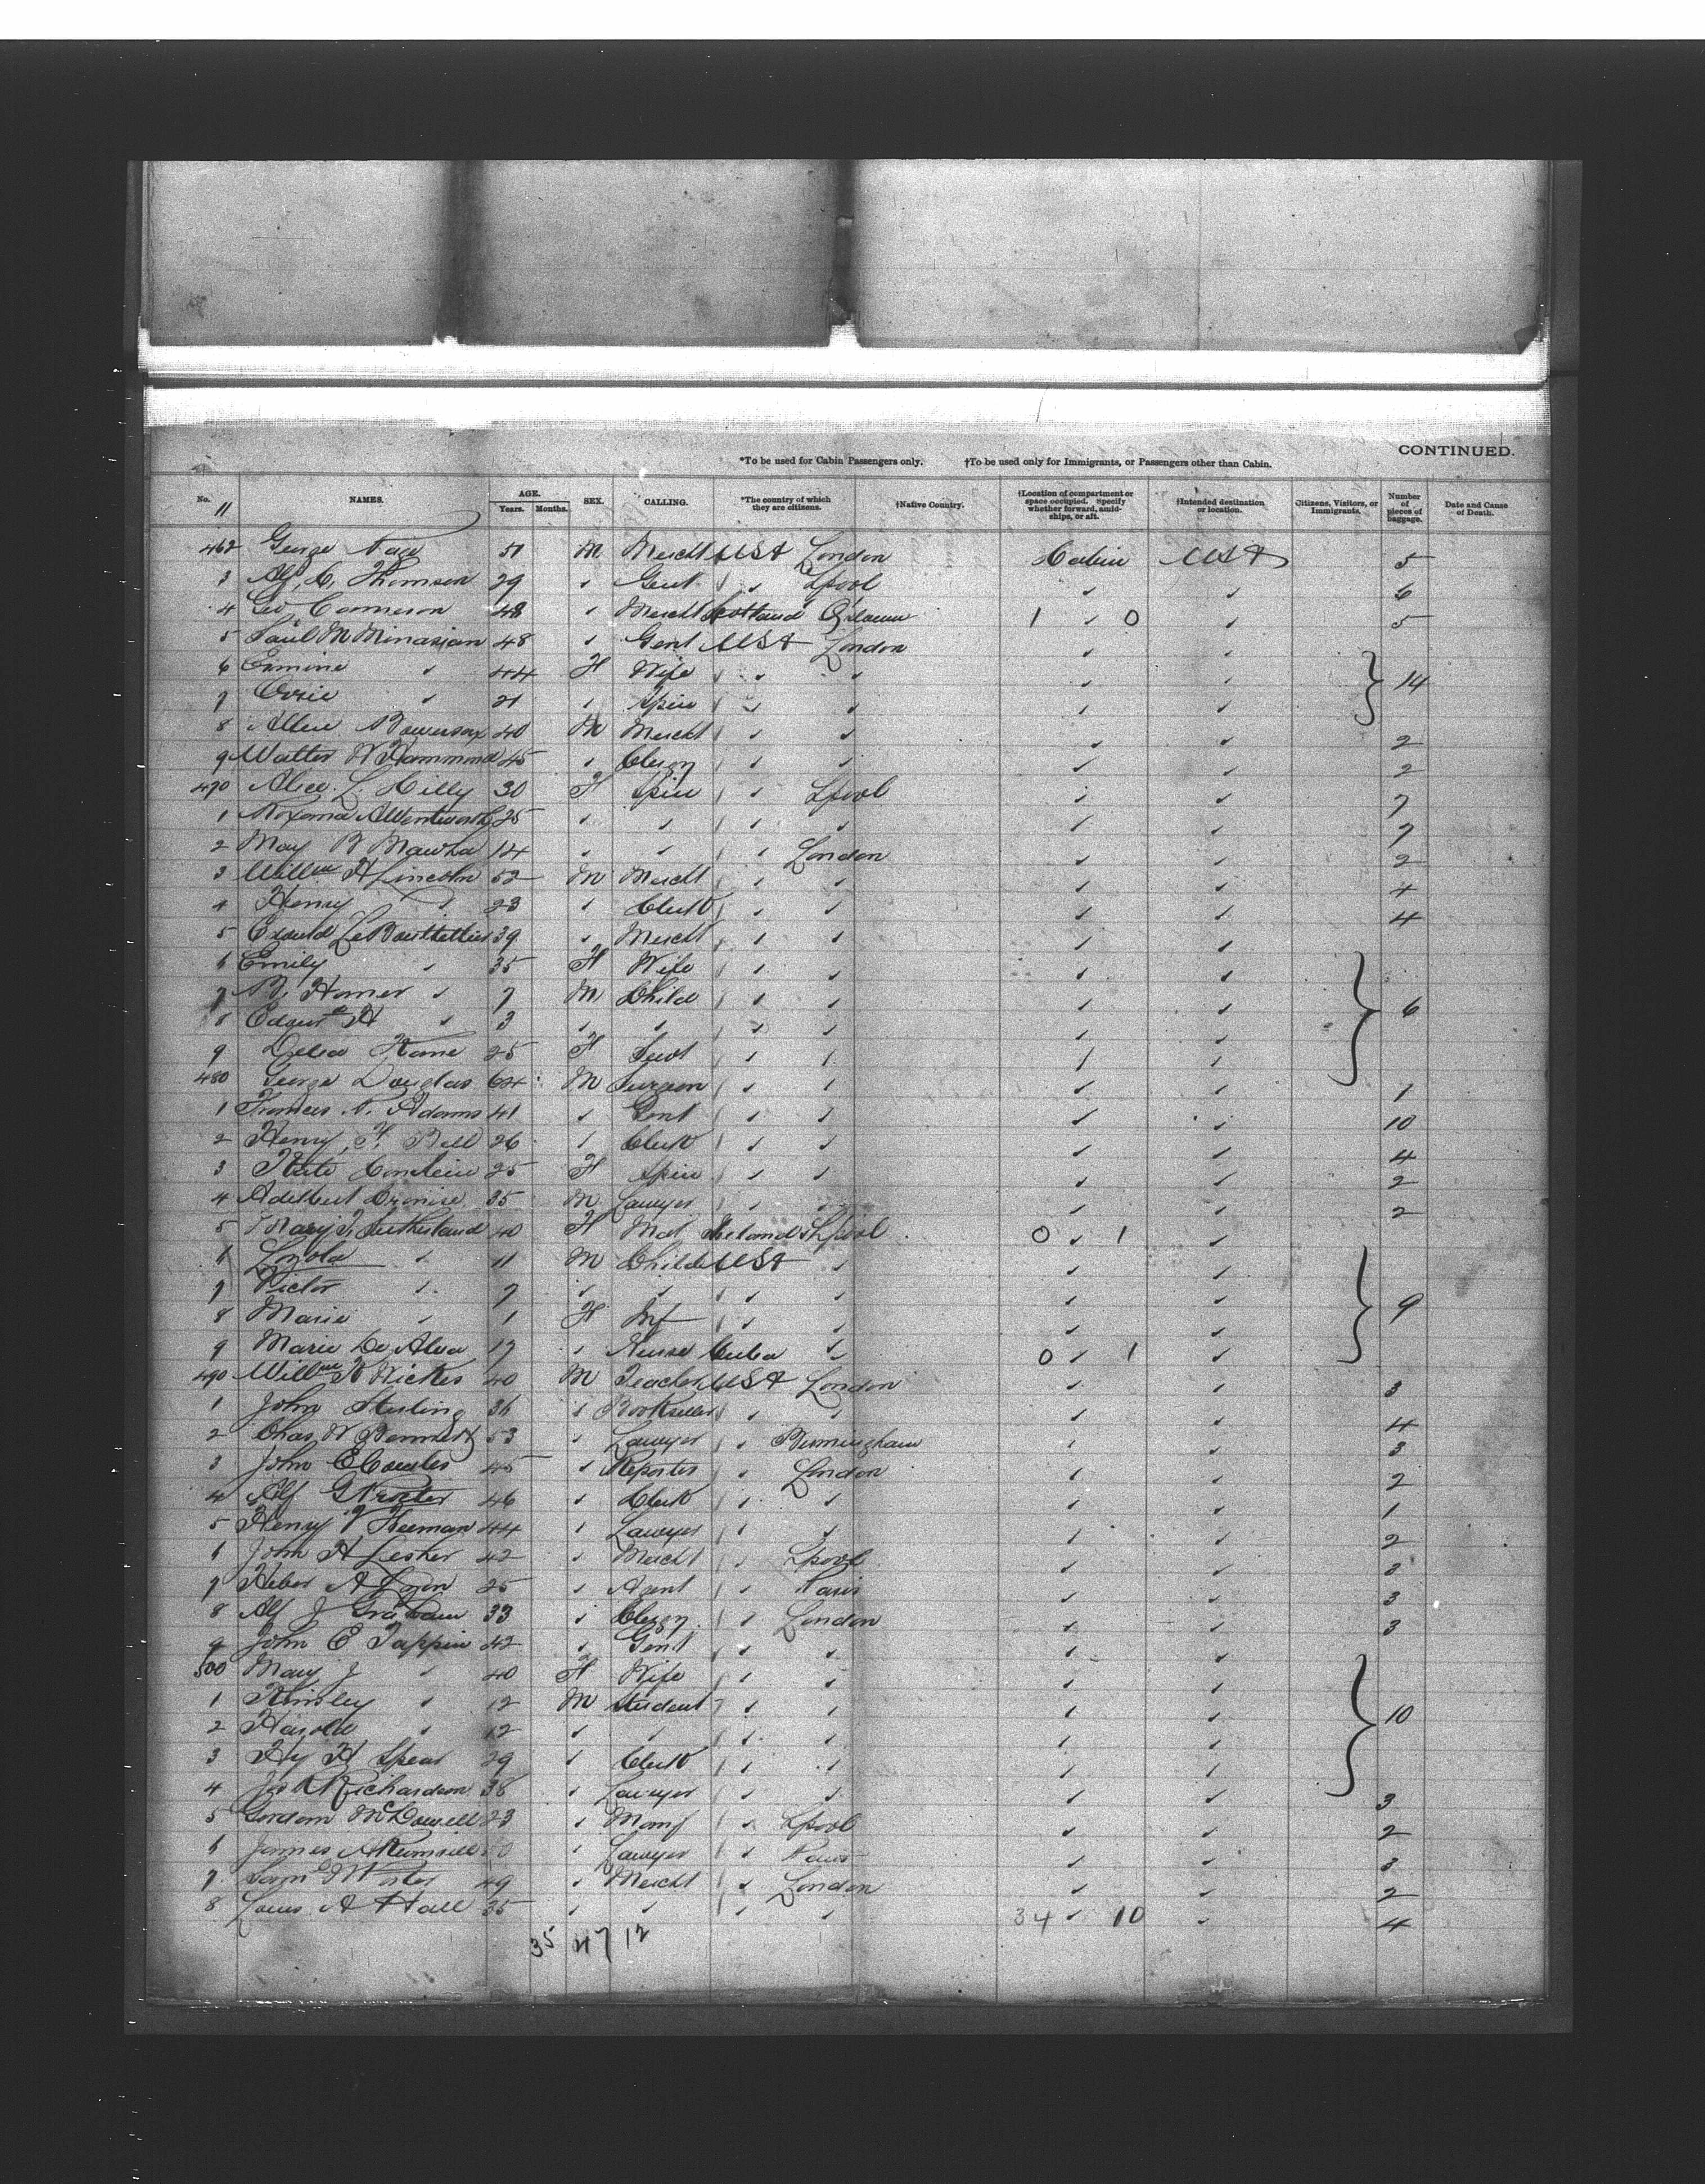 CONTINUED.
*To be used for Cabin Passengers only. †To be used only for Immigrants, or Passengers other than Cabin.
No. NAMES. AGE. Years. Months. SEX. CALLING. *The country of which they are citizens. †Native Country. †Location of compartment or space occupied. Specify whether forward, amidships, or aft. †Intended destination or location. Citizens, Visitors, or Immigrants. Number of pieces of baggage. Date and Cause of Death.
11
462 George 51 M Mercht USA London Cabin USA 5
3 Alf. C. Thomson 29 " Gent " Lpool " " 6
4 Geo Cameron 48 " Mercht Scotland 1 " 0 " 5
5 M Minasian 48 " Gent USA London " "
6 Ermine " 44 F Wife " " " " 14
7 " 21 " Spin " " " "
8 Allen Bowersox 40 M Mercht " " " " 2
9 Walter W Hammond 45 " Clergy " " " " 2
470 Alice L. Hilly 30 F Spin " Lpool " " 7
1 A Wentworth 25 " " " " " " 7
2 May B 14 " " " London " " 2
3 Willm H Lincoln 52 M Mercht " " " " 4
4 Henry " 23 " Clerk " " " " 4
5 39 " Mercht " " " "
6 Emily " 35 F Wife " " " "
7 B. Homer " 7 M Child " " " " 6
8 H " 3 " " " " " "
9 Delia Kane 25 F Servt " " " "
480 George Douglas 64 M Surgeon " " " " 1
1 Frances N. Adams 41 " Gent " " " " 10
2 Henry F. Bell 26 " Clerk " " " " 4
3 Kate 25 F Spin " " " " 2
4 Adelbert Cronise 35 M Lawyer " " " " 2
5 Mary J. Sutherland 40 F Mat Ireland Lpool 0 " 1 "
6 Loyola " 11 M Child USA " " "
7 Victor " 7 " " " " " " 9
8 Marie " 1 F Inf " " " "
9 Marie De Alva 17 " Nurse Cuba " 0 " 1 "
490 Willm K Wickes 40 M Teacher USA London " " 3
1 John Sterling 36 " Bookseller " " " " 4
2 Chas W Bennett 53 " Lawyer " Birmingham " " 3
3 John E Cowles 45 " Reporter " London " " 2
4 Alf G Procter 46 " Clerk " " " " 1
5 Henry 44 " Lawyer " " " " 2
6 John H Lesher 42 " Mercht " Lpool " "
7 Heber A 25 " Agent " Paris " " 3
8 Alf J Graham 33 " Clergy " London " " 3
9 John E Tappin 42 " Gent " " " "
500 Mary J " 40 F Wife " " " "
1 " 12 M Student " " " " 10
2 Harold " 12 " " " " " "
3 Hy H Spear 29 " Clerk " " " "
4 Richardson 38 " Lawyer " " " " 3
5 Gordon McDowell 23 " Manf " Lpool " " 2
6 James A Rumrill " Lawyer " " " 3
7 Saml 49 " Mercht " London " " 2
8 Louis A Hall 35 " " " " 34 " 10 " 4
35 47 12